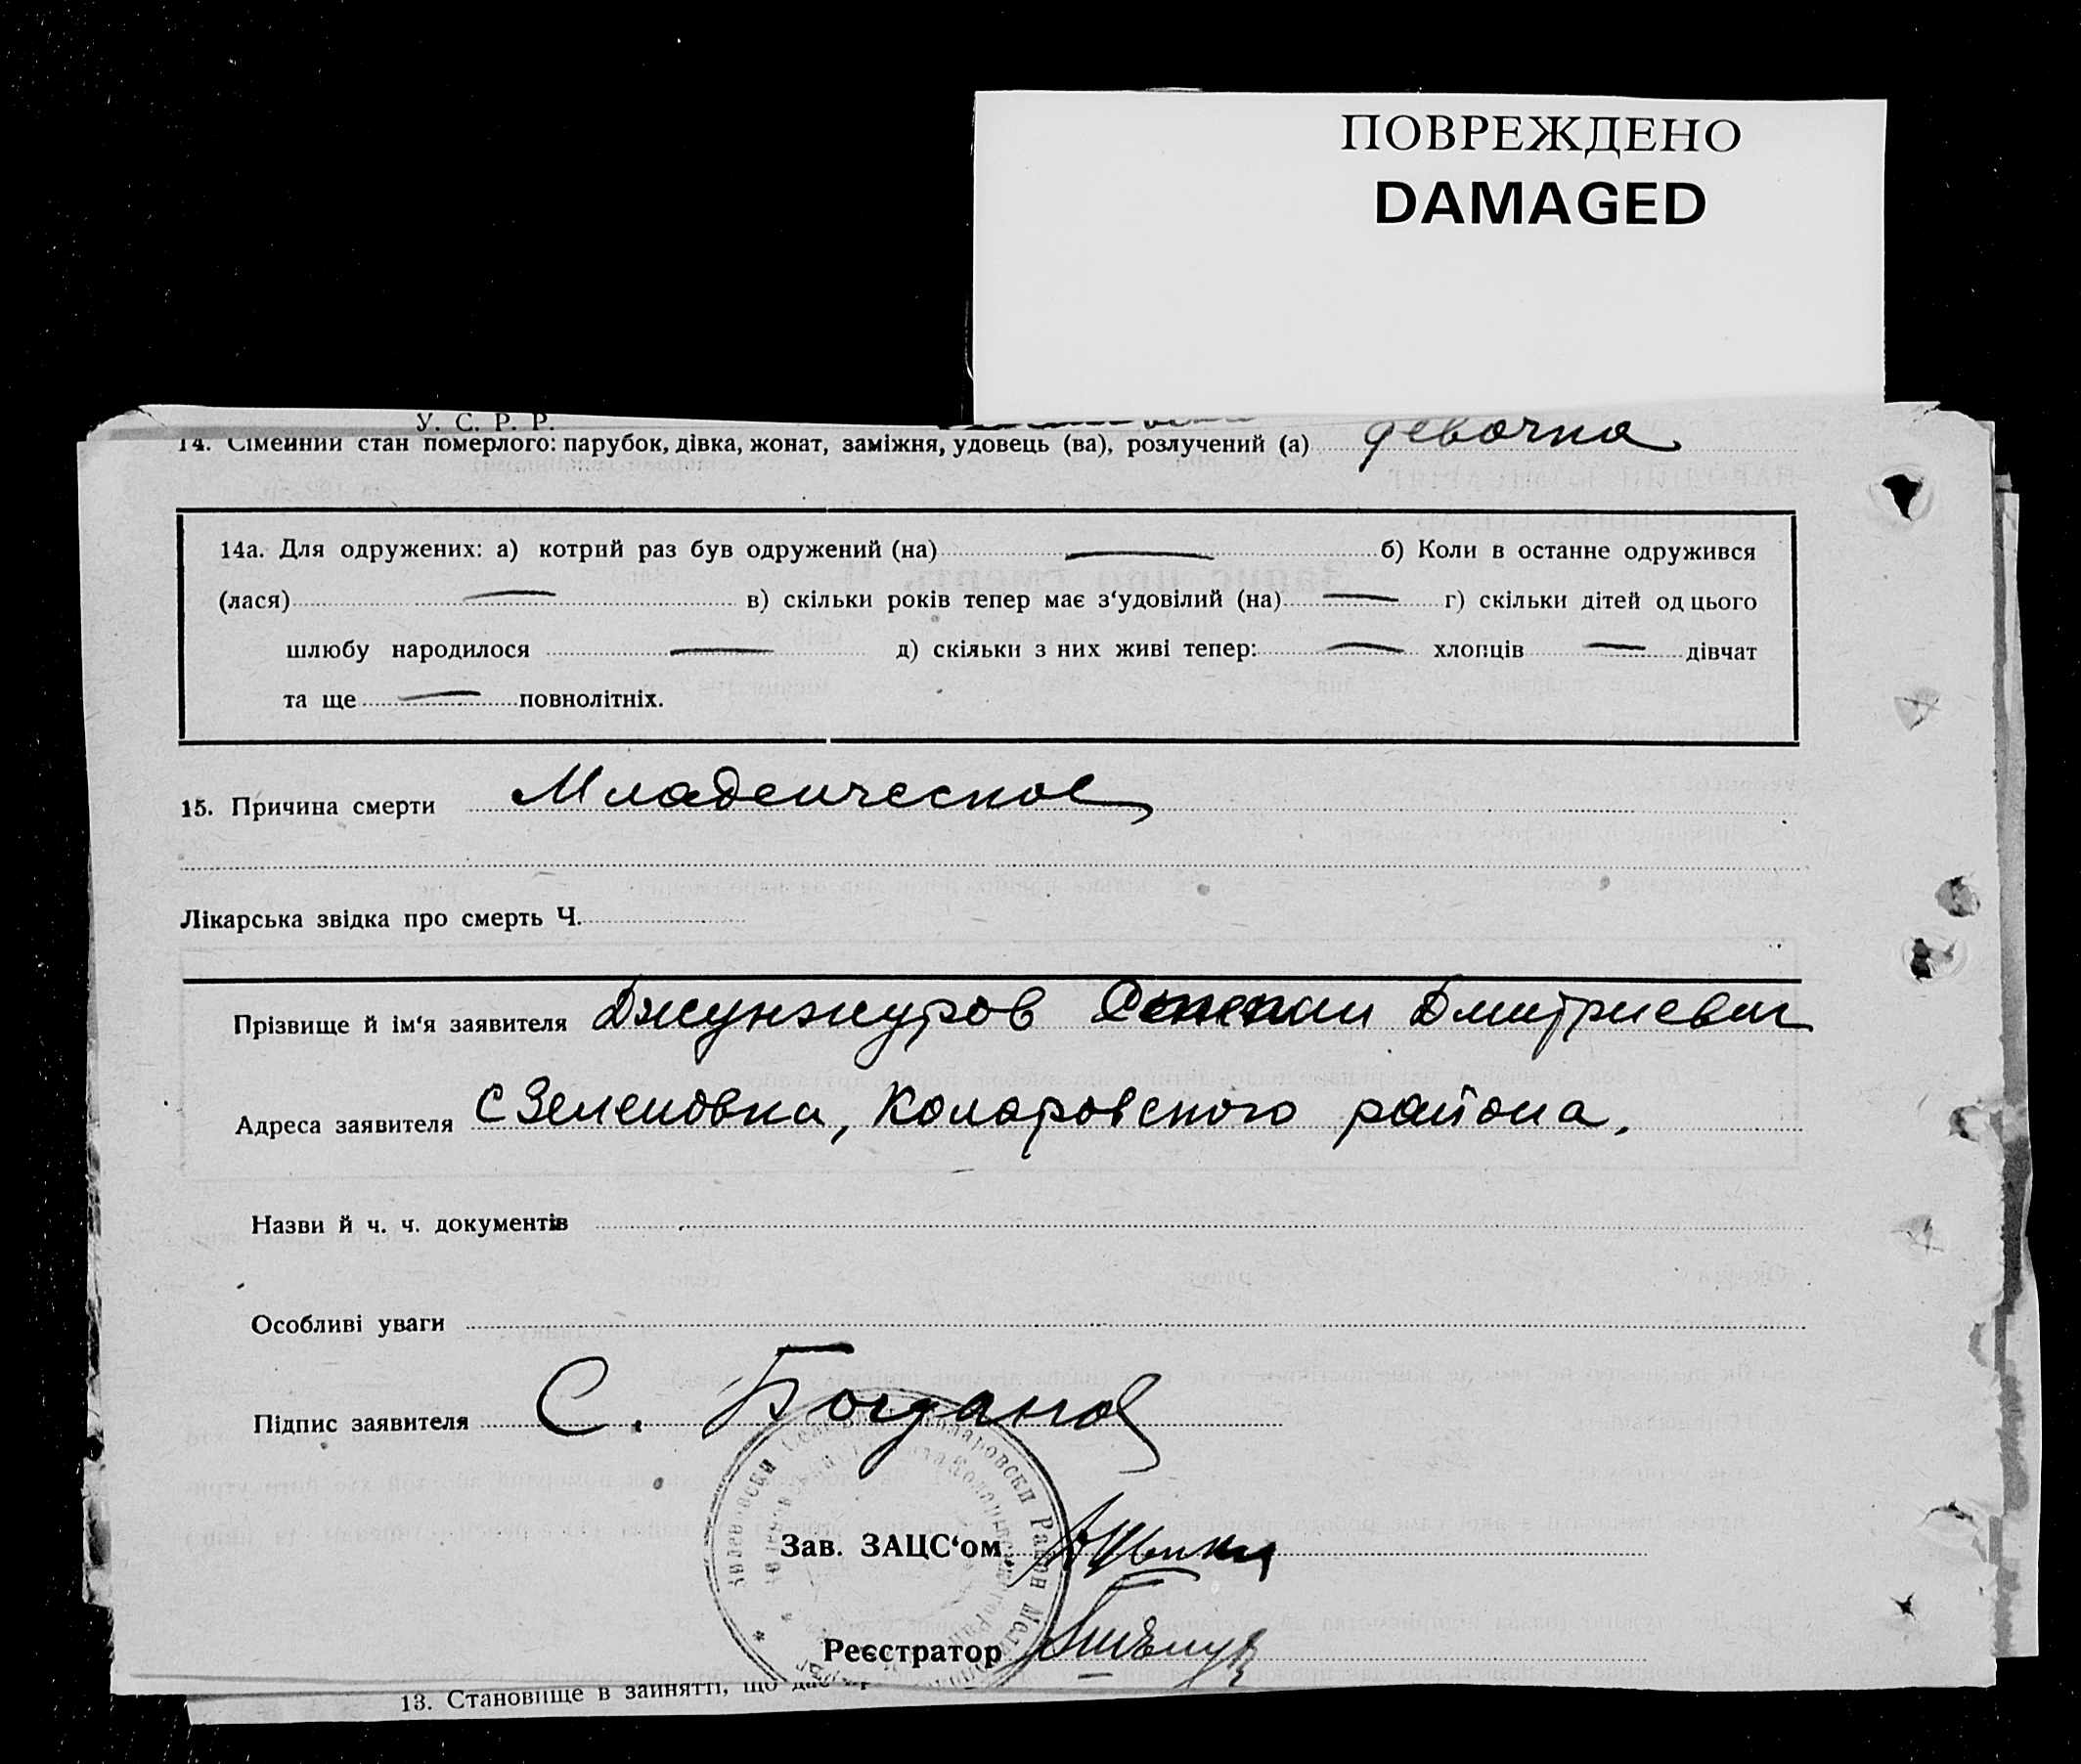 ПОВРЕЖДЕНО
DAMAGED
У. С. Р. Р.
14. Сімейний стан померлого: парубок, дівка, жонат, заміжня, удовець (ва), розлучений (а) девочка
14а. Для одружених: а) котрий раз був одружений (на) — б) Коли в останне одружився
(лася) — в) скільки років тепер має з‘удовілий (на) — г) скільки дітей од цього
шлюбу народилося — д) скільки з них живі тепер: — хлопців — дівчат
та ще — повнолітніх.
15. Причина смерти Младенческое
Лікарська звідка про смерть Ч.
Прізвище й ім‘я заявителя Джунжуров Степан Дмитриевич
Адреса заявителя с Зеленовка, Коларовского района.
Назви й ч. ч. документів
Особливі уваги
Підпис заявителя С. Богданов
Зав. ЗАЦС‘ом
Реєстратор
13. Становище в занятті, що дає